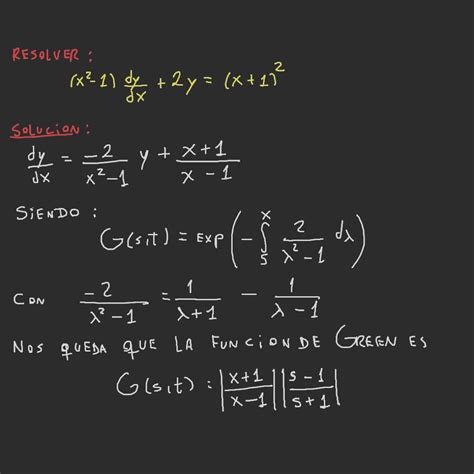 RESOLVER:
(x²-1) dy/dx + 2y = (x+1)²
SOLUCION:
dy/dx = -2/(x²-1) y + (x+1)/(x-1)
SIENDO:
G(s,t) = EXP(-∫ₛˣ 2/(λ²-1) dλ)
CON -2/(λ²-1) = 1/(λ+1) - 1/(λ-1)
NOS QUEDA QUE LA FUNCION DE GREEN ES
G(s,t) = |(x+1)/(x-1)||(s-1)/(s+1)|